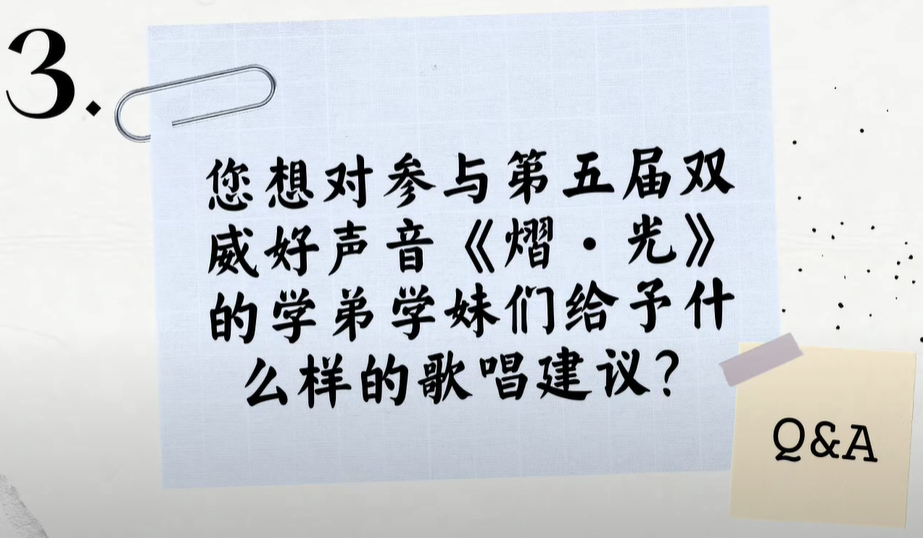 3.
您想对参与第五届双
威好声音《熠·光》
的学弟学妹们给予什
么样的歌唱建议?
Q&A